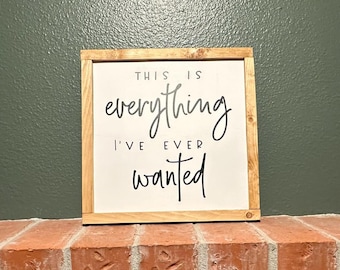 THIS IS
everything
I'VE EVER
wanted